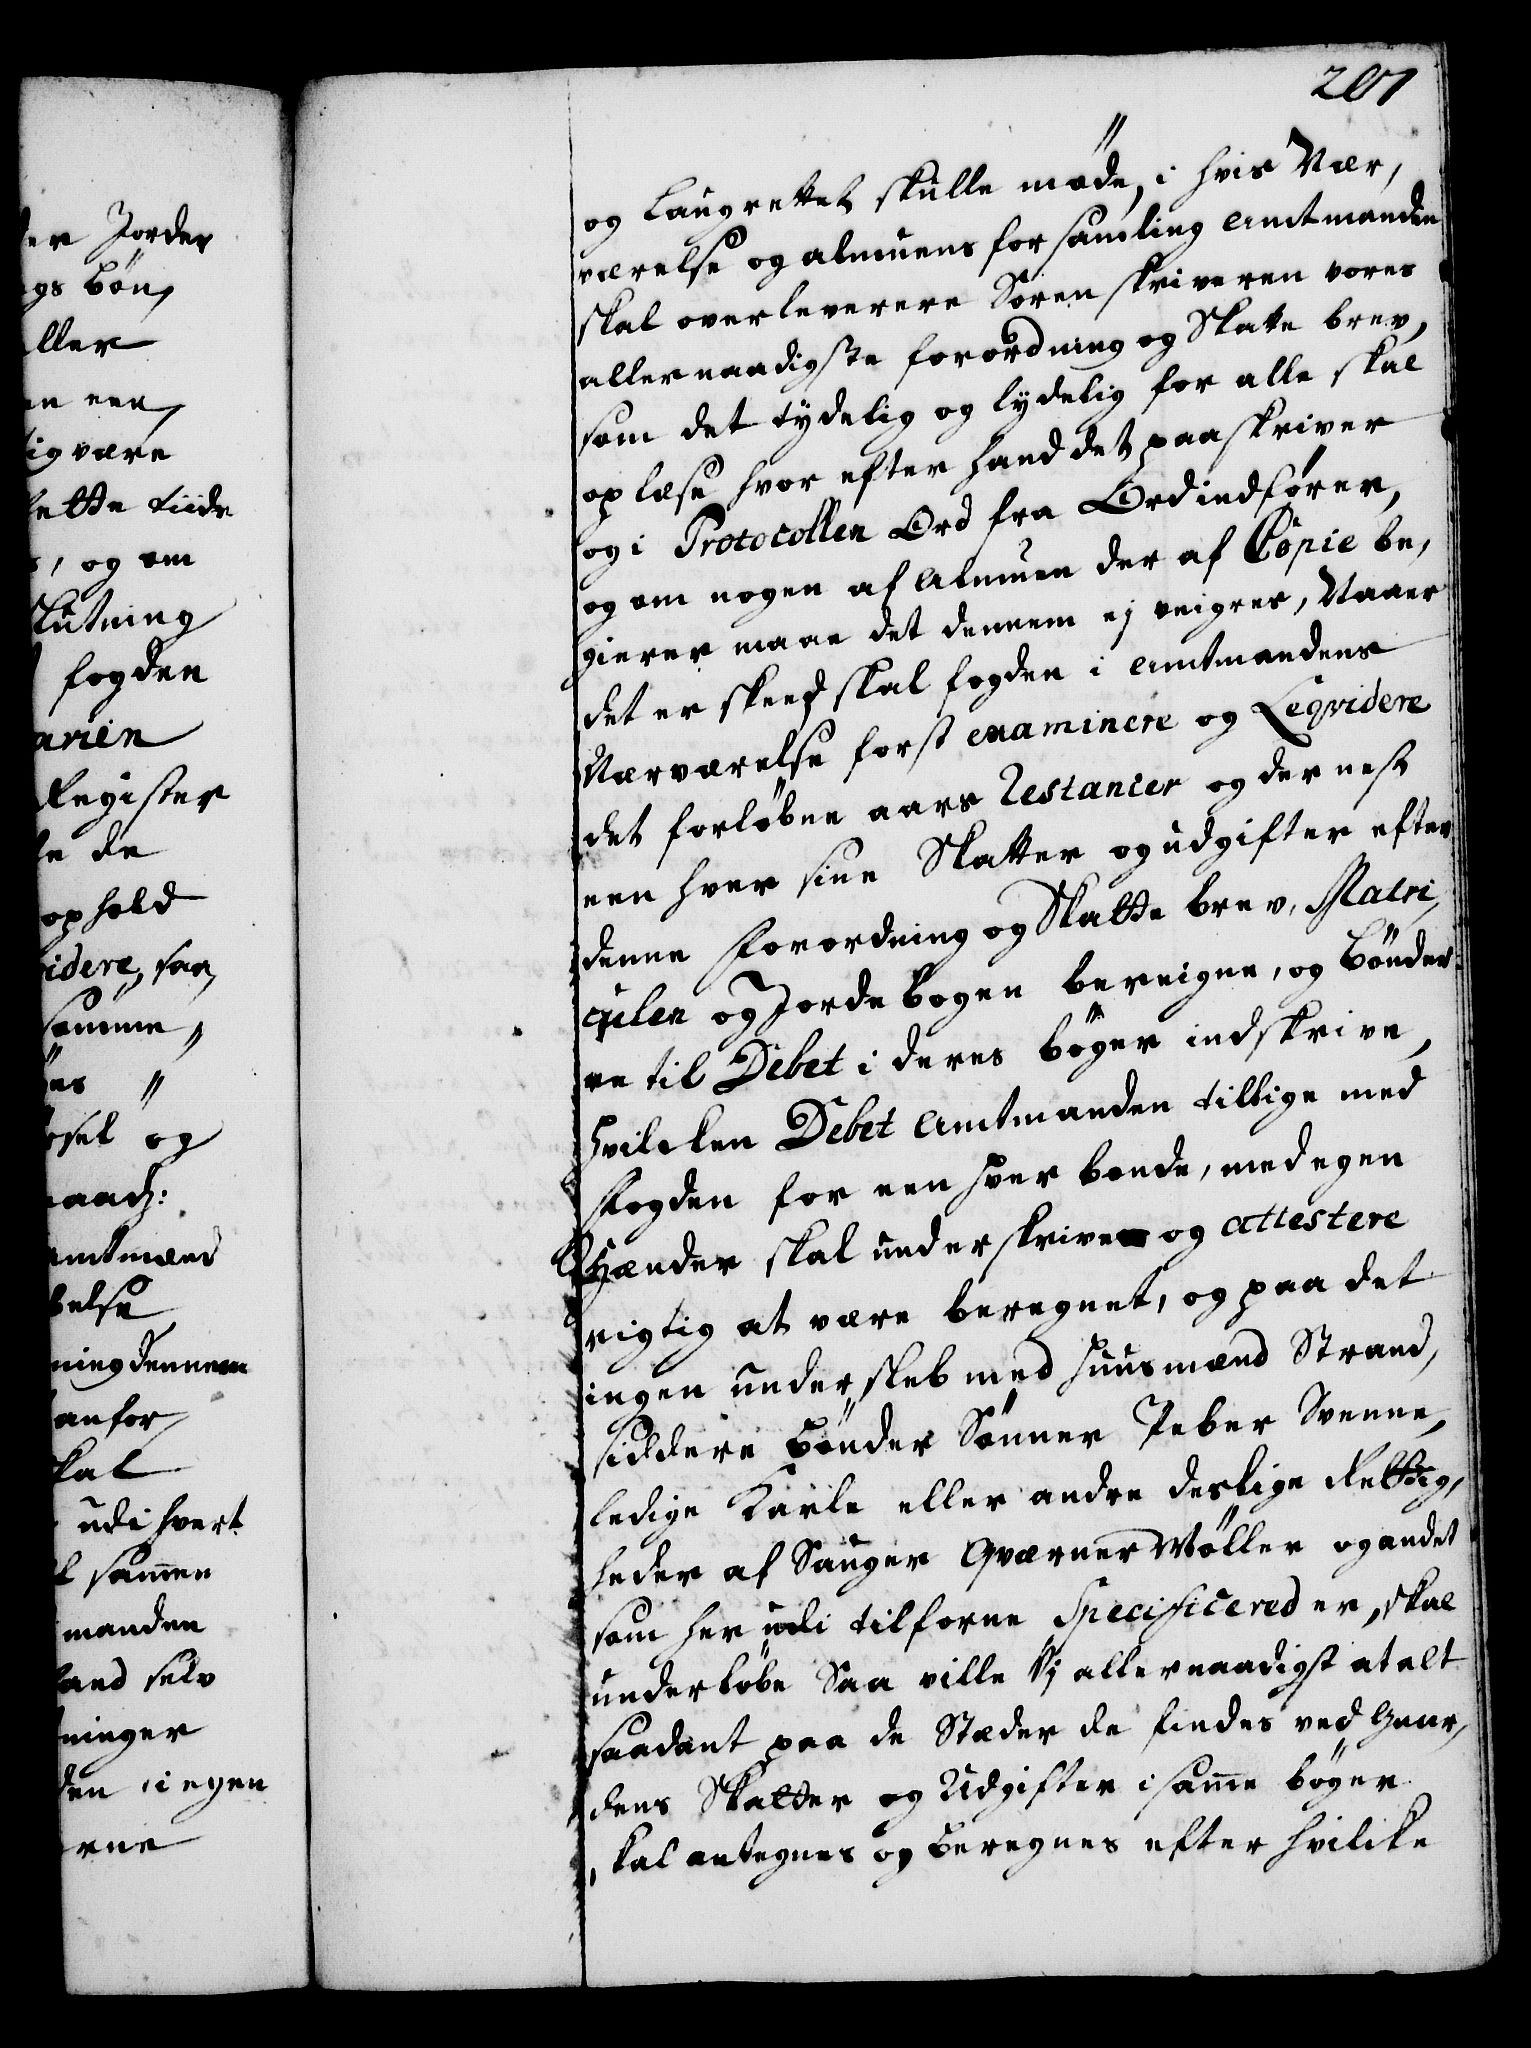 207
og Laugrettet skulle møde, i hvis Nær,
værelse og almuens forsamling Amtmanden
skal overleverere Sorenskriveren vores
allernaadigste forordning og Skatte brev,
som det tydelig og lydelig for alle skal
oplæse hvor efter hand det paaskriver
og i Protocollen Ord fra Ord indfører,
og om nogen af Almuen der af Copie be,
gierer maae det dennem ej veigres, Naaer
det er skeed skal fogden i Amtmandens
Nærværelse først examinere og Leqvidere
det forløbne aars Restancer og der nest
een hver sine Skatter og udgifter efter
denne Forordning og Skatte brev, Matri,
culen og Jordebogen bereigne, og bønder
ne til Debet i deres bøger indskrive,
hvilcken Debet Amtmanden tillige med
Fogden for een hver bonde, med egen
Hænder skal underskrive og attestere
rigtig at være beregnet, og paa det
ingen underskeb med Huusmænd Strand,
siddere bønder Sønner Peber Svenne,
ledige Karle eller andre deslige Rettig,
heder af Sauger Qværner Møller og andet
som her udi tilforne Specificered er, skal
underløbe Saa ville Vj allernaadigst at alt
saadant paa de Stæder de findes ved Gaar,
dens Skatter og Udgifter i samme bøger
skal antegnes og beregnes efter hvilcke
er Jorder
ags bøn,
ller
en een,
tig være
dette tiide
s, og om
slutning
fogden
arien
Register
de
ophold
idere, saa,
somme,
og
naadz:
Amtmænd
belse
ning dennem
anfor,
skal
udi hvert
sammen
manden
hand selv
ninger
den i egen
erne